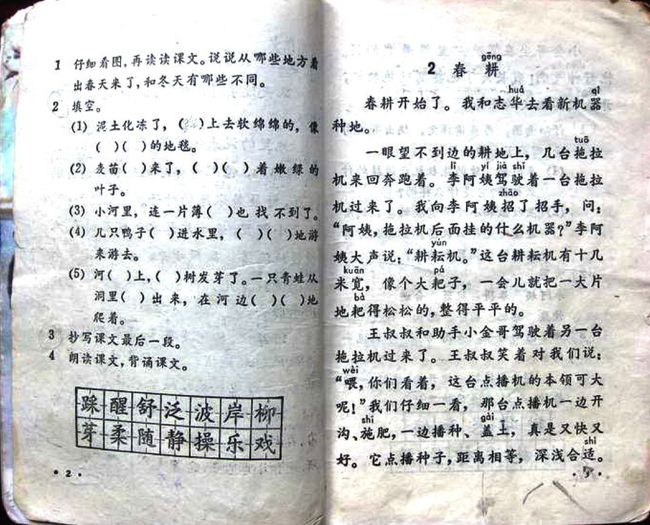 1 仔细看图,再读读课文。说说从哪些地方看
出春天来了,和冬天有哪些不同。
2 填空。
(1) 泥土化冻了,( )上去软绵绵的,像
( )( )的地毯。
(2) 麦苗( )来了,( )( )着嫩绿的
叶子。
(3) 小河里,连一片薄( )也找不到了。
(4) 几只鸭子( )进水里,( )( )地游
来游去。
(5) 河( )上,( )树发芽了。一只青蛙从
洞里( )出来,在河边( )( )地
爬着。
3 抄写课文最后一段。
4 朗读课文,背诵课文。
踩醒舒泛波岸柳
芽柔随静操乐戏
·2·
gēng
2 春耕
huá qì
春耕开始了。我和志华去看新机器
种地。
tuō
一眼望不到边的耕地上,几台拖拉
lǐ yí jià shǐ
机来回奔跑着。李阿姨驾驶着一台拖拉
zhāo
机过来了。我向李阿姨招了招手,问:
“阿姨,拖拉机后面挂的什么机器?”李阿
yún
姨大声说:“耕耘机。”这台耕耘机有十几
kuān pá
米宽,像个大耙子,一会儿就把一大片
bà
地耙得松松的,整得平平的。
王叔叔和助手小金哥驾驶着另一台
拖拉机过来了。王叔叔笑着对我们说:
wèi
“喂,你们看着,这台点播机的本领可大
呢!”我们仔细一看,那台点播机一边开
shī gài
沟、施肥,一边播种、盖土,真是又快又
shì
好。它点播种子,距离相等,深浅合适。